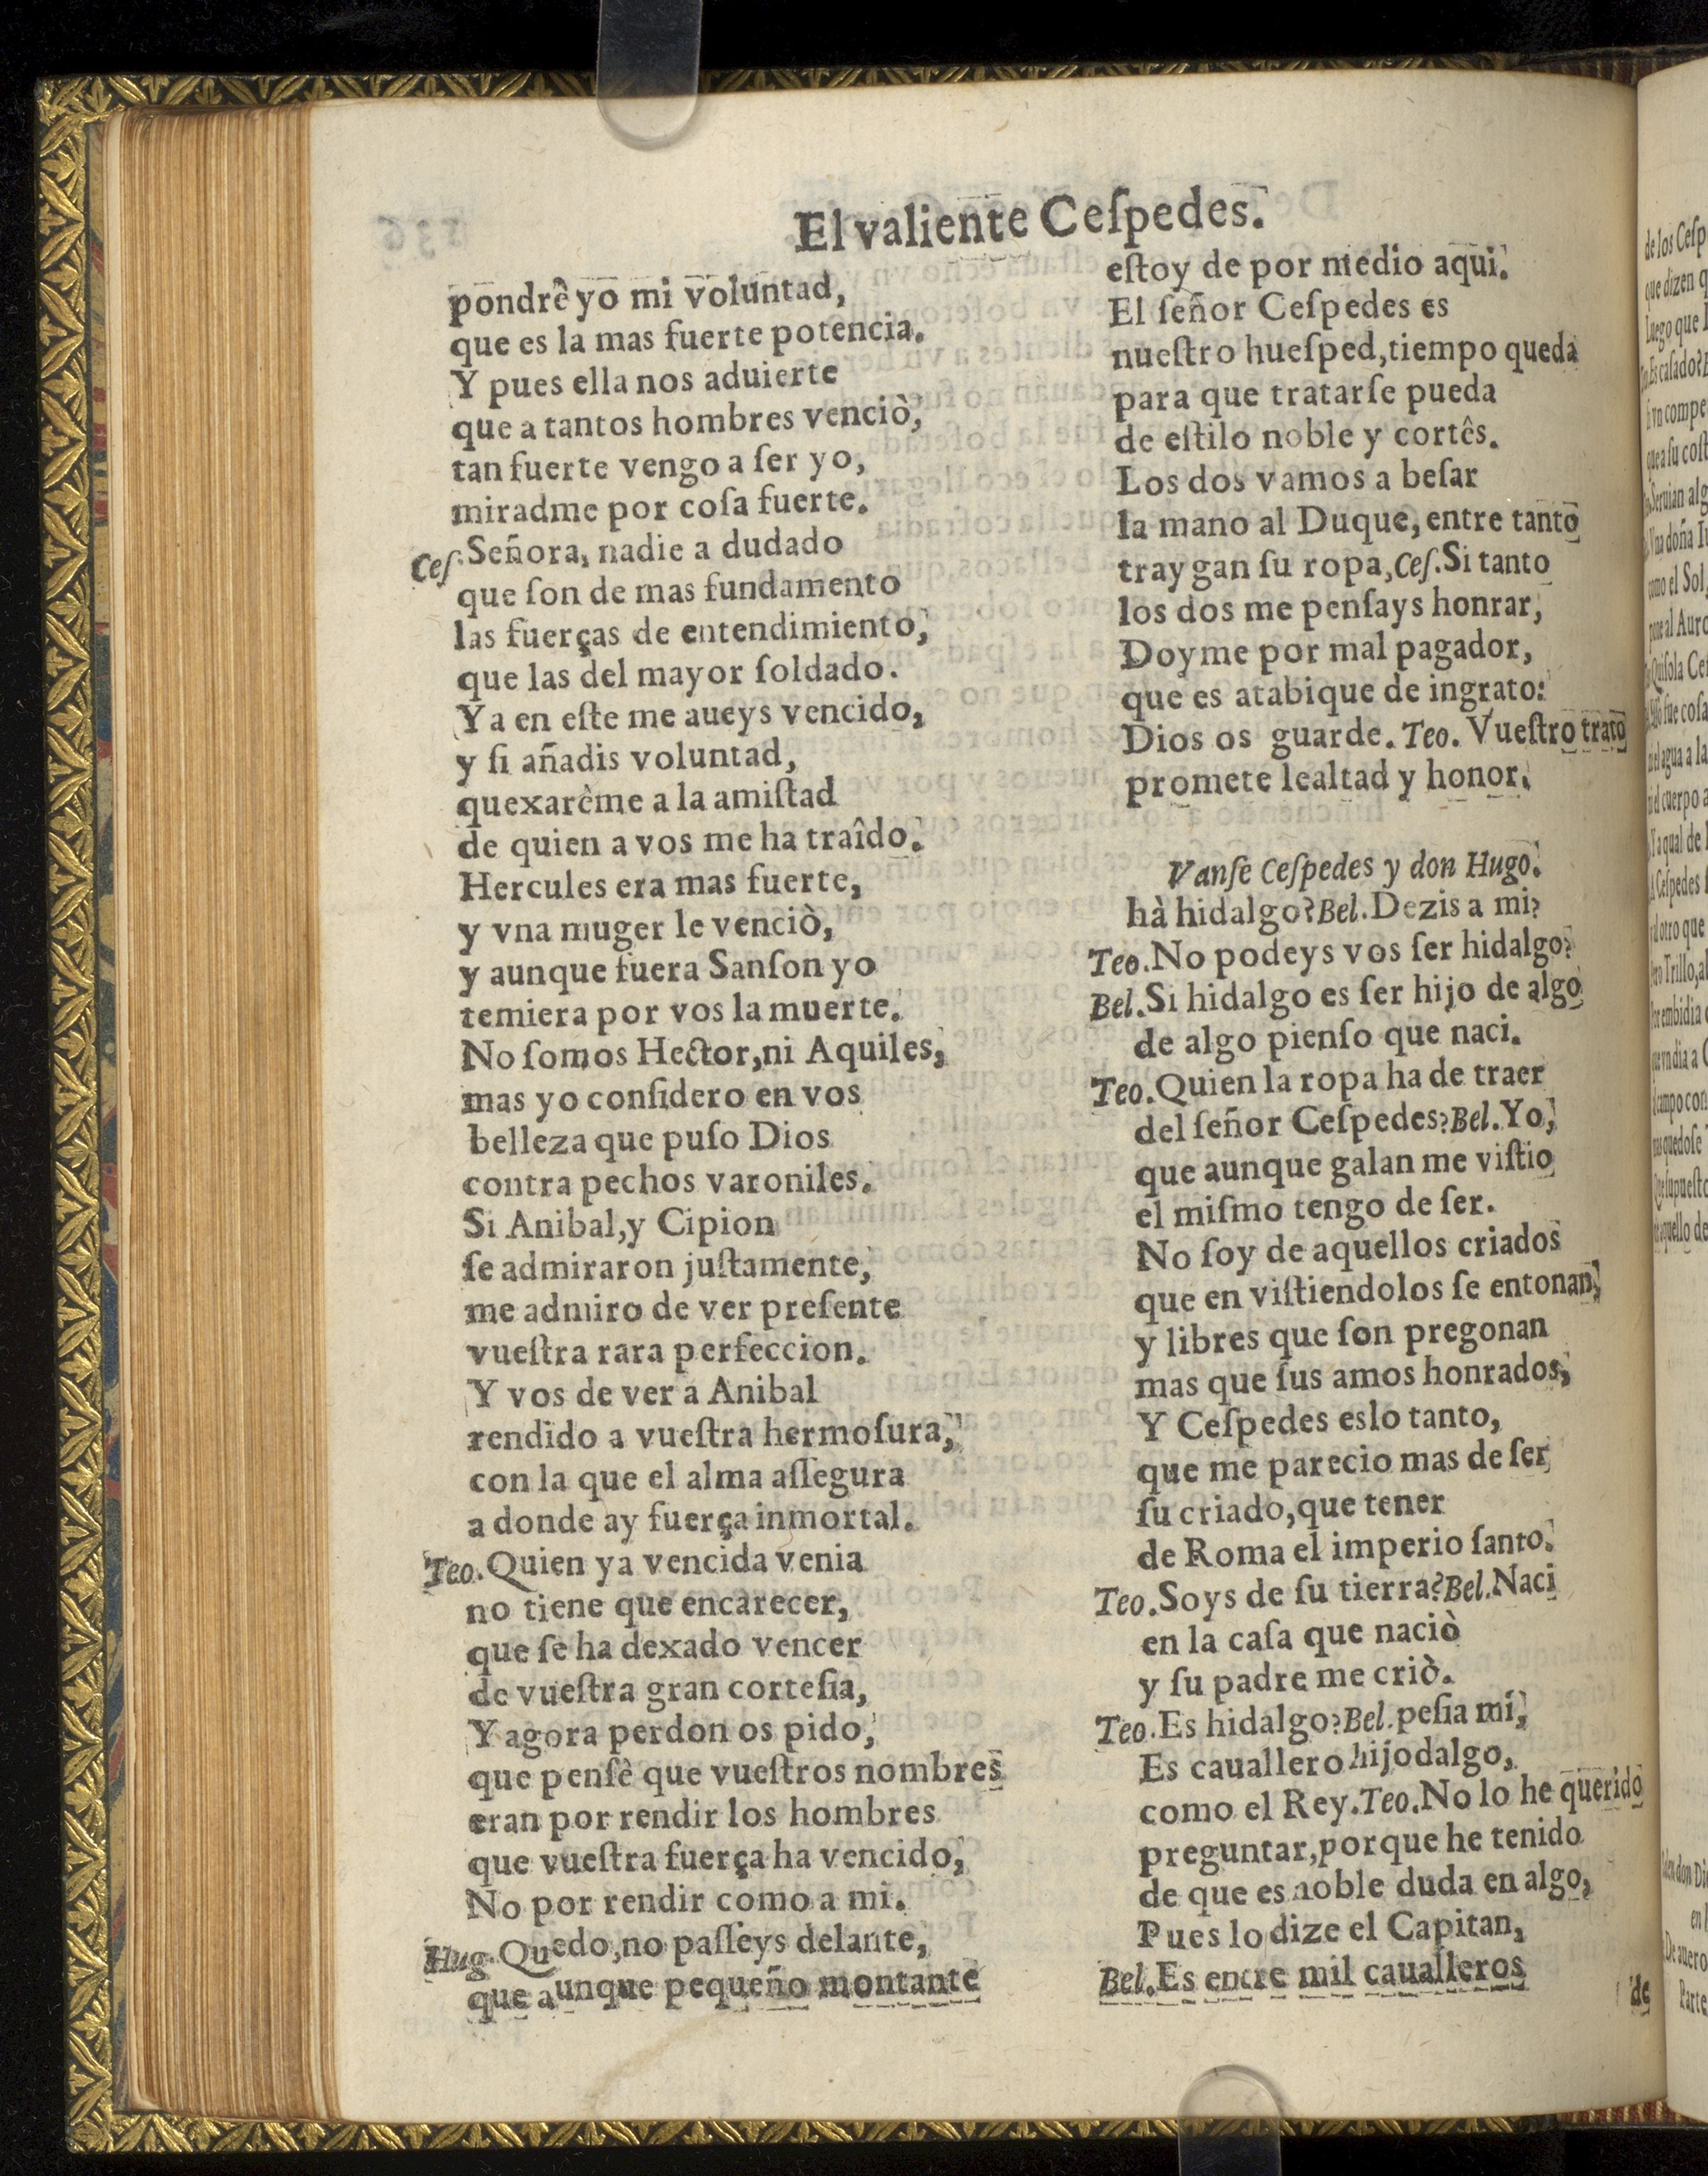 El valiente Ceſpedes.
pondrê yo mi voluntad,
que es la mas fuerte potencia.
Y pues ella nos aduierte
que a tantos hombres venciò,
tan fuerte vengo a ſer yo,
miradme por coſa fuerte.
Ceſ. Señora, nadie a dudado
que ſon de mas fundamento
las fuerças de entendimiento,
que las del mayor ſoldado.
Ya en eſte me aueys vencido,
y ſi añadis voluntad,
quexarème a la amiſtad
de quien a vos me ha traîdo.
Hercules era mas fuerte,
y vna muger le venciò,
y aunque fuera Sanſon yo
temiera por vos la muerte.
No ſomos Hector, ni Aquiles,
mas yo conſidero en vos
belleza que puſo Dios
contra pechos varoniles.
Si Anibal, y Cipion
ſe admiraron juſtamente,
me admiro de ver preſente
vueſtra rara perfeccion.
Y vos de ver a Anibal
rendido a vueſtra hermoſura,
con la que el alma aſſegura
a donde ay fuerça inmortal.
Teo. Quien ya vencida venia
no tiene que encarecer,
que ſe ha dexado vencer
de vueſtra gran corteſia,
Y agora perdon os pido,
que penſè que vueſtros nombres
eran por rendir los hombres
que vueſtra fuerça ha vencido,
No por rendir como a mi.
Hug. Quedo, no paſſeys delante,
que aunque pequeño montante
eſtoy de por medio aqui.
El ſeñor Ceſpedes es
nueſtro hueſped, tiempo queda
para que tratarſe pueda
de eſtilo noble y cortês.
Los dos vamos a beſar
la mano al Duque, entre tanto
traygan ſu ropa, Ceſ. Si tanto
los dos me penſays honrar,
Doyme por mal pagador,
que es atabique de ingrato:
Dios os guarde. Teo. Vueſtro trato
promete lealtad y honor.
Vanſe Ceſpedes y don Hugo.
hà hidalgo? Bel. Dezis a mi?
Teo. No podeys vos ſer hidalgo?
Bel. Si hidalgo es ſer hijo de algo
de algo pienſo que naci.
Teo. Quien la ropa ha de traer
del ſeñor Ceſpedes? Bel. Yo,
que aunque galan me viſtio
el miſmo tengo de ſer.
No ſoy de aquellos criados
que en viſtiendolos ſe entonan,
y libres que ſon pregonan
mas que ſus amos honrados,
Y Ceſpedes eslo tanto,
que me parecio mas de ſer
ſu criado, que tener
de Roma el imperio ſanto.
Teo. Soys de ſu tierra? Bel. Naci
en la caſa que naciò
y ſu padre me criò.
Teo. Es hidalgo? Bel. peſia mi,
Es cauallero hijodalgo,
como el Rey. Teo. No lo he querido
preguntar, porque he tenido
de que es noble duda en algo,
Pues lo dize el Capitan,
Bel. Es entre mil caualleros
de